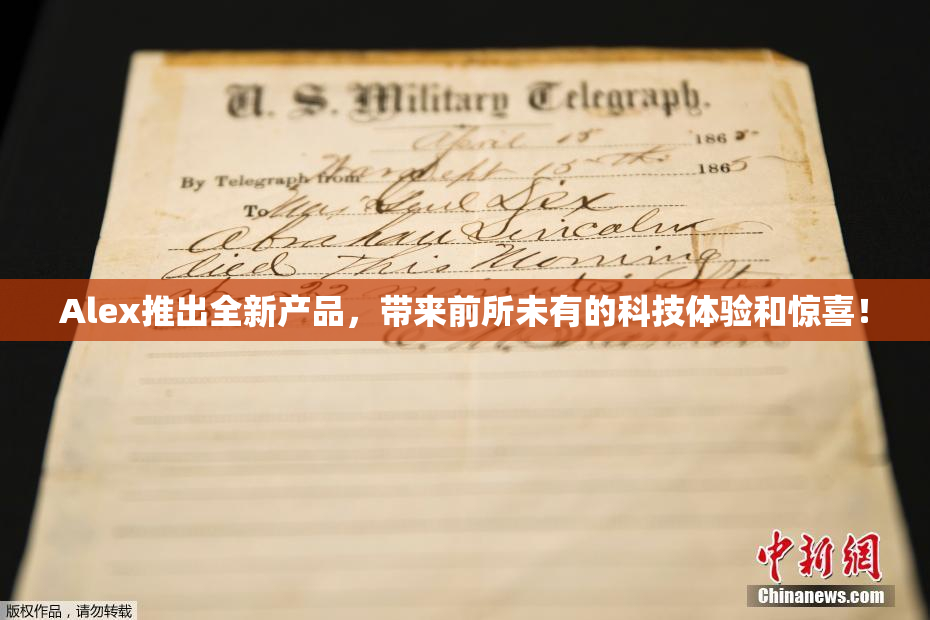 U. S. Military Telegraph.
April 15 1865
By Telegraph from War Dept 15th 1865
To Maj Genl Dix
Abraham Lincoln
died This Morning
22 minutes after
Alex推出全新产品，带来前所未有的科技体验和惊喜！
E. M. Stanton
中新网
Chinanews.com
版权作品，请勿转载